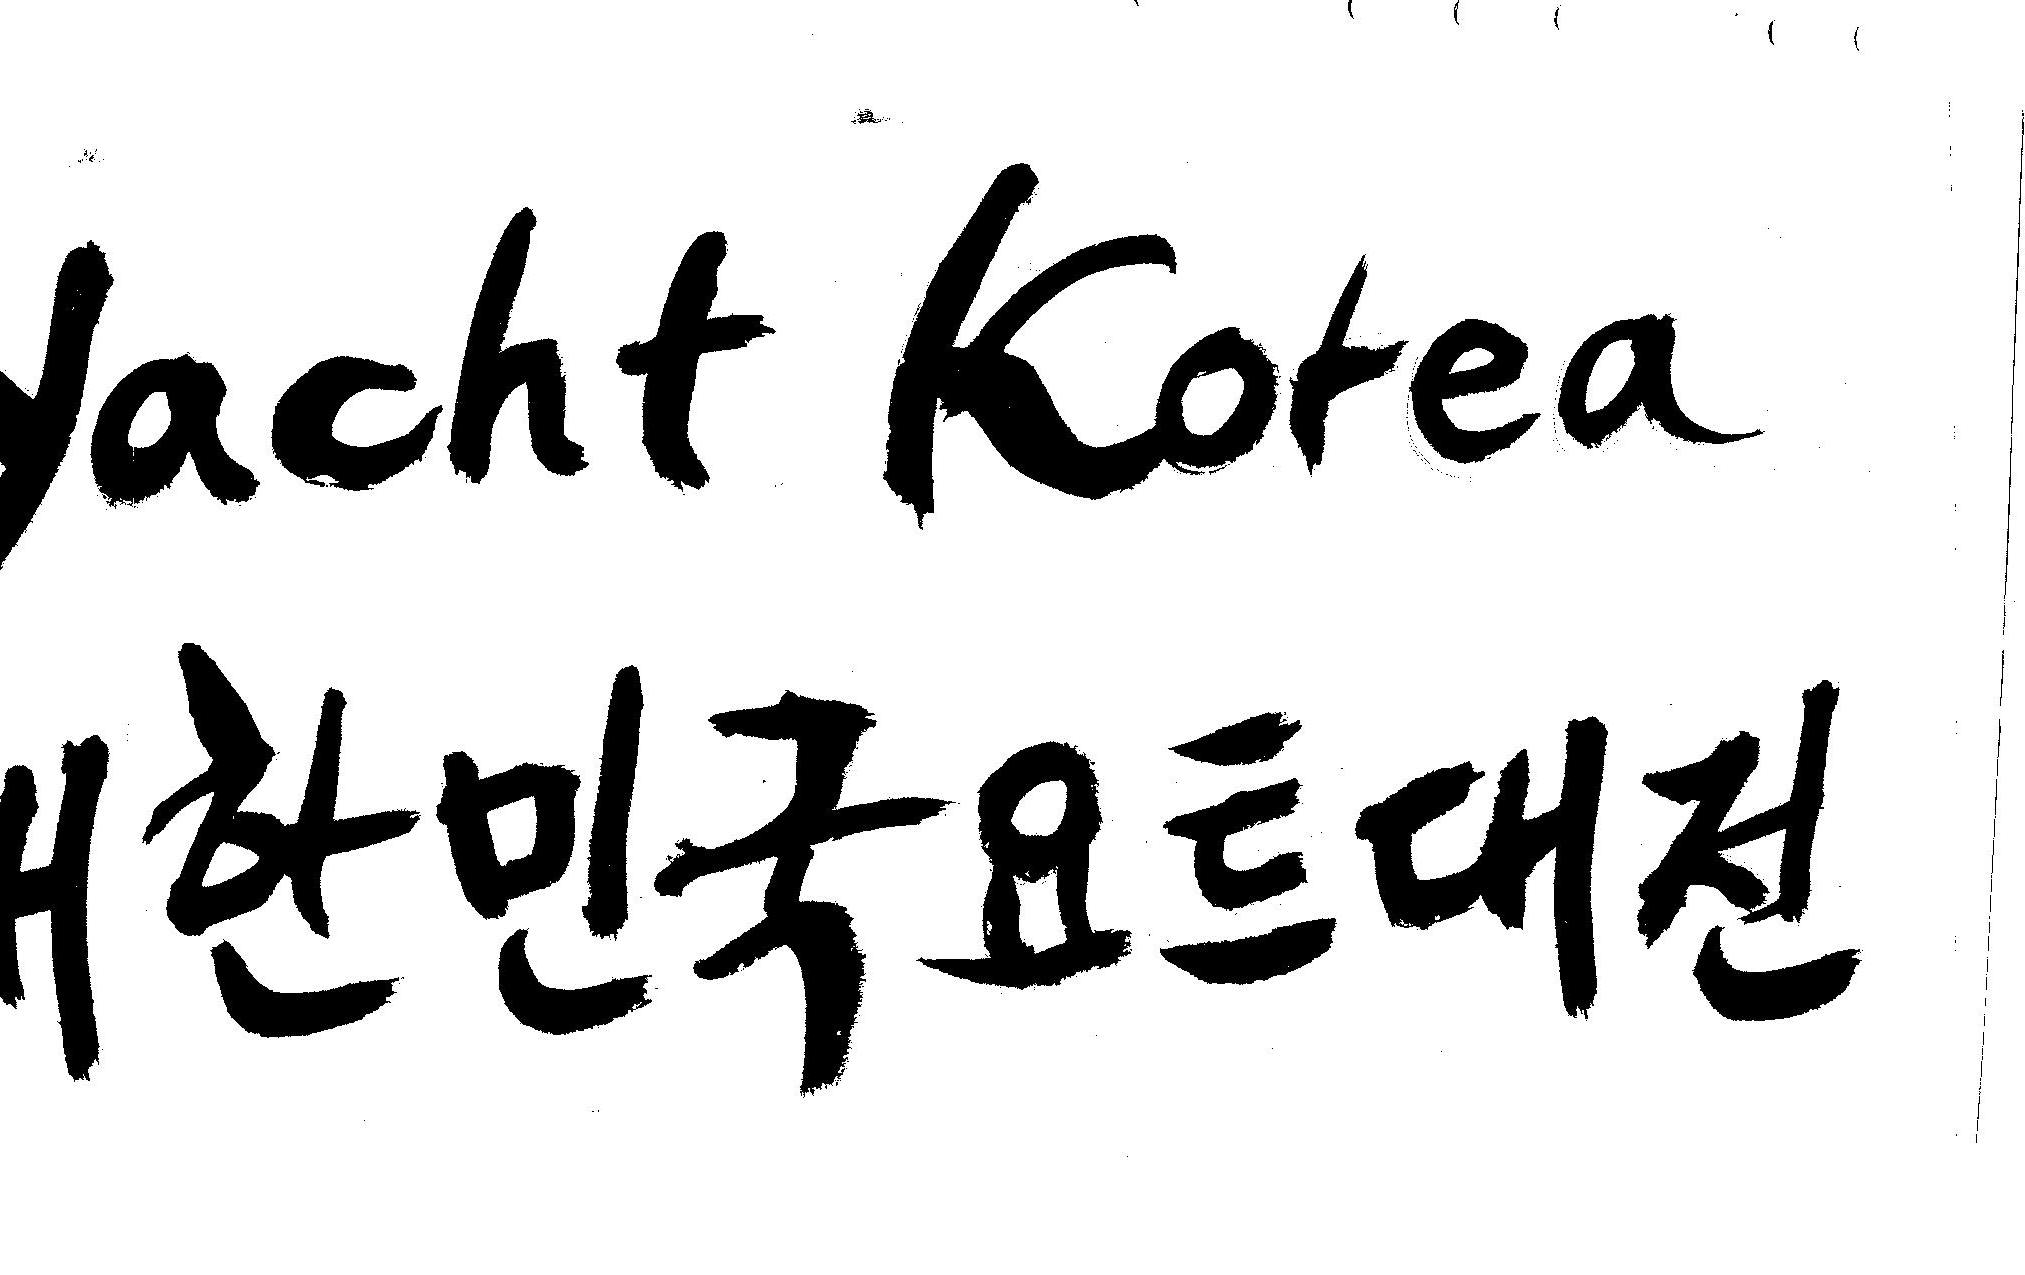 yacht Korea
대한민국요트대전